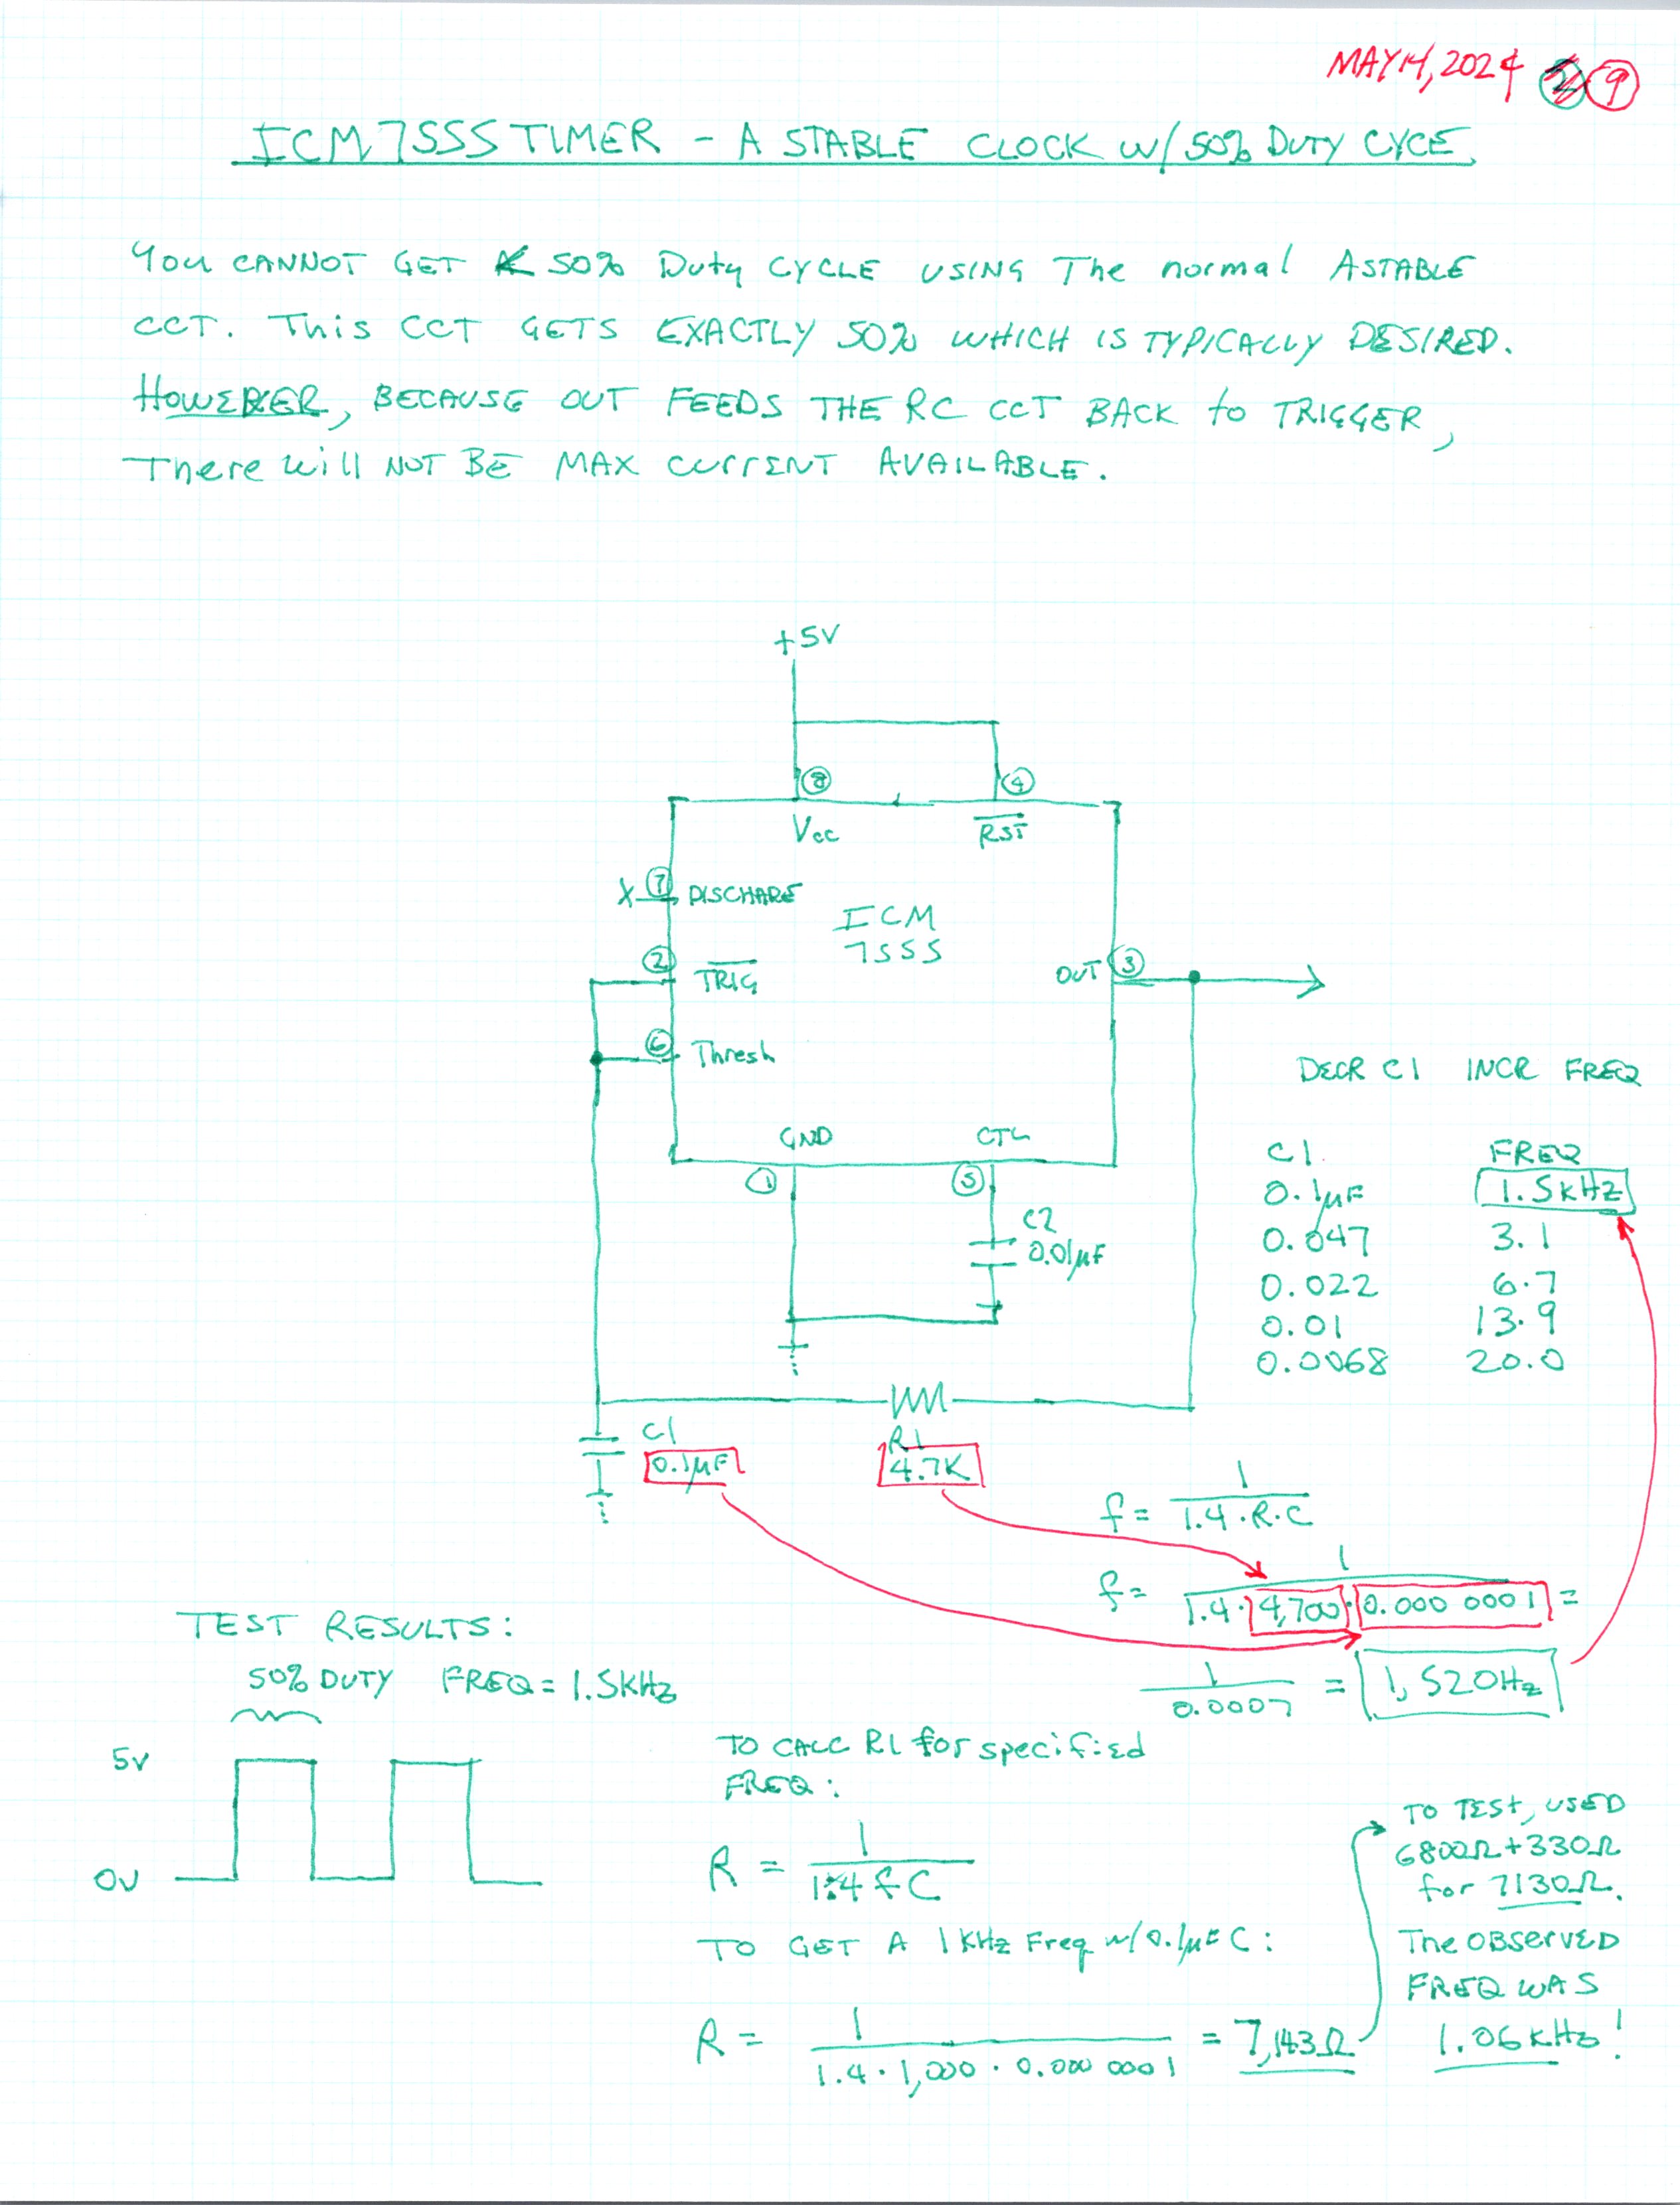 MAY 14, 2024 9
ICM7555 TIMER - A STABLE CLOCK W/ 50% DUTY CYCE
You CANNOT GET 50% Duty CYCLE USING The normal ASTABLE
CCT. This CCT GETS EXACTLY 50% WHICH IS TYPICALLY DESIRED.
HOWEVER, BECAUSE OUT FEEDS THE RC CCT BACK to TRIGGER,
There will NOT BE MAX CURRENT AVAILABLE.
+5V
8 4
Vcc RST
X 7 DISCHARE
ICM
7555
2 TRIG
OUT 3
6 Thresh
DECR C1 INCR FREQ
GND CTL
1 5
C1 FREQ
0.1µF 1.5KHZ
0.047 3.1
0.022 6.7
0.01 13.9
0.0068 20.0
C2
0.01µF
C1
0.1µF
R1
4.7K
f = 1 / 1.4 · R · C
f = 1 / 1.4 · 4,700 · 0.000 0001 =
1 / 0.0007 = 1,520Hz
TEST RESULTS:
50% DUTY FREQ = 1.5KHz
5V
0V
TO CALC R1 for specified
FREQ:
R = 1 / 1.4 f C
TO GET A 1 KHz Freq w/ 0.1µF C:
R = 1 / 1.4 · 1,000 · 0.000 0001 = 7,143Ω
TO TEST, USED
6800Ω + 330Ω
for 7130Ω.
The OBSERVED
FREQ WAS
1.06 KHz!